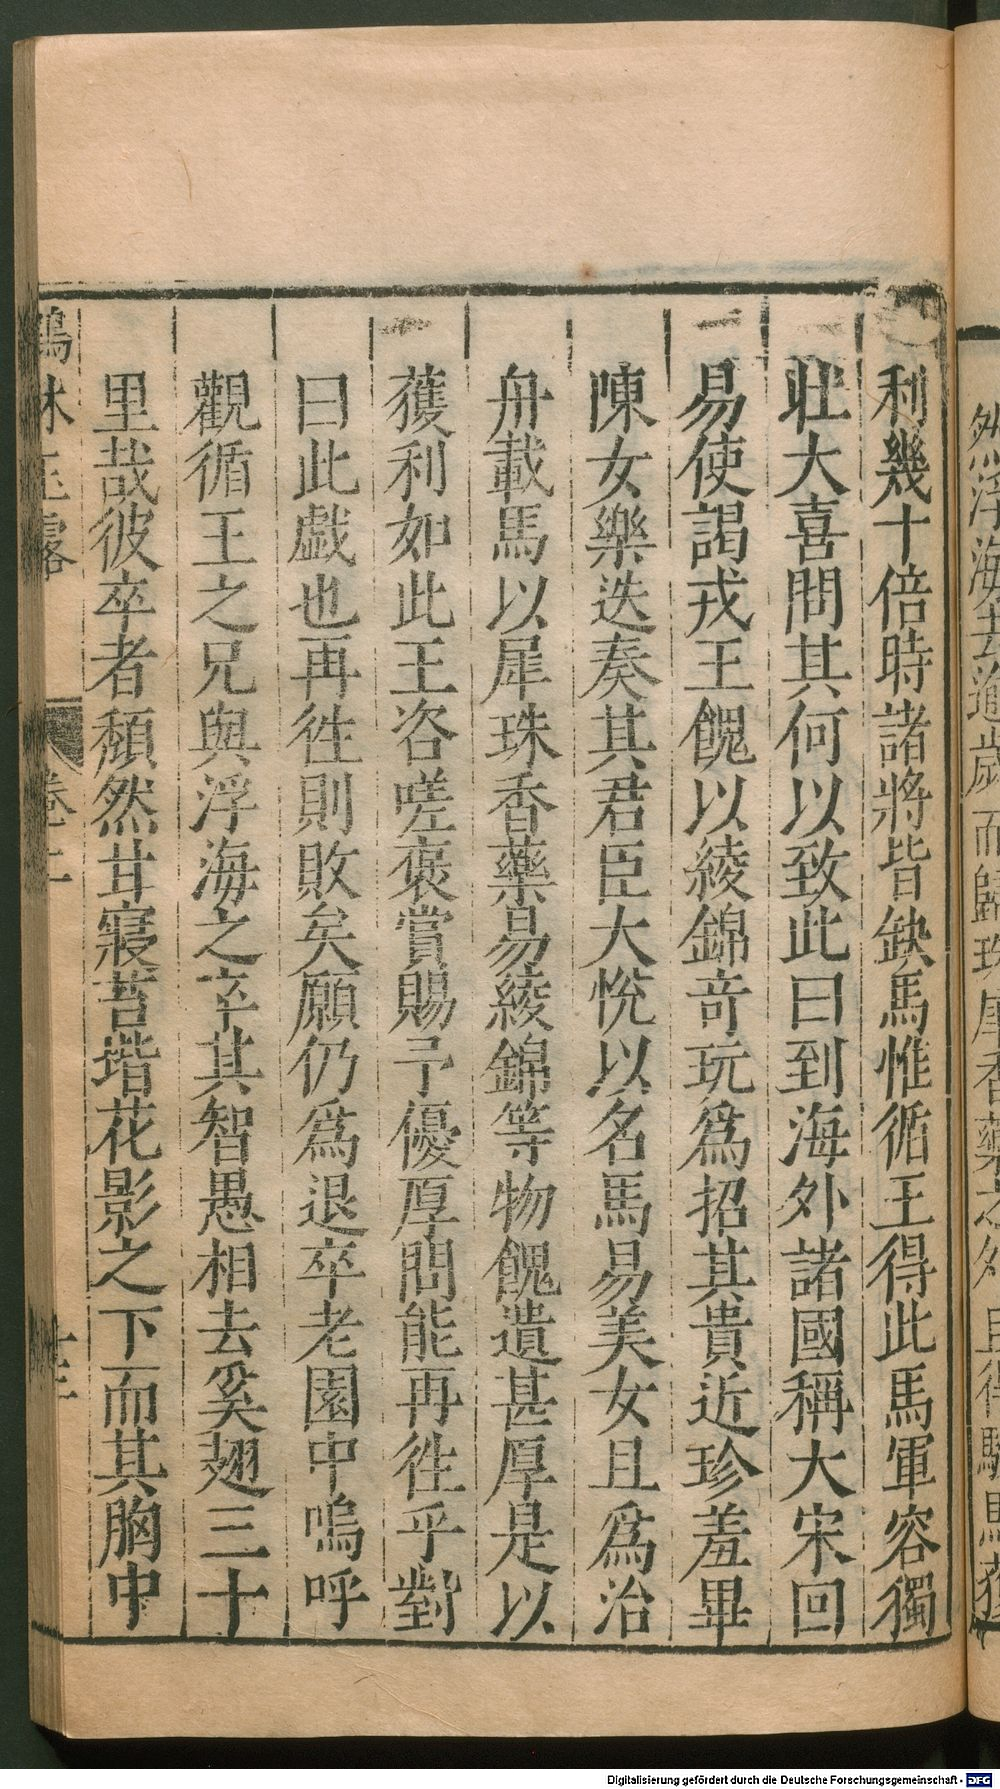 然浮海去逾歲而歸珠犀香藥之外且得駿馬獲
利幾十倍時諸將皆缺馬惟循王得此馬軍容獨
壯大喜問其何以致此曰到海外諸國稱大宋回
易使謁戎王餽以綾錦竒玩爲招其貴近珍羞畢
陳女樂迭奏其君臣大悅以名馬易美女且爲治
舟載馬以犀珠香藥易綾錦等物餽遺甚厚是以
獲利如此王咨嗟褒賞賜予優厚問能再徃乎對
曰此戯也再徃則敗矣願仍爲退卒老園中嗚呼
觀循王之兄與浮海之卒其智愚相去奚翅三十
里哉彼卒者頹然甘寢苔堦花影之下而其胸中
鶴林玉露 卷二
Digitalisierung gefördert durch die Deutsche Forschungsgemeinschaft - DFG